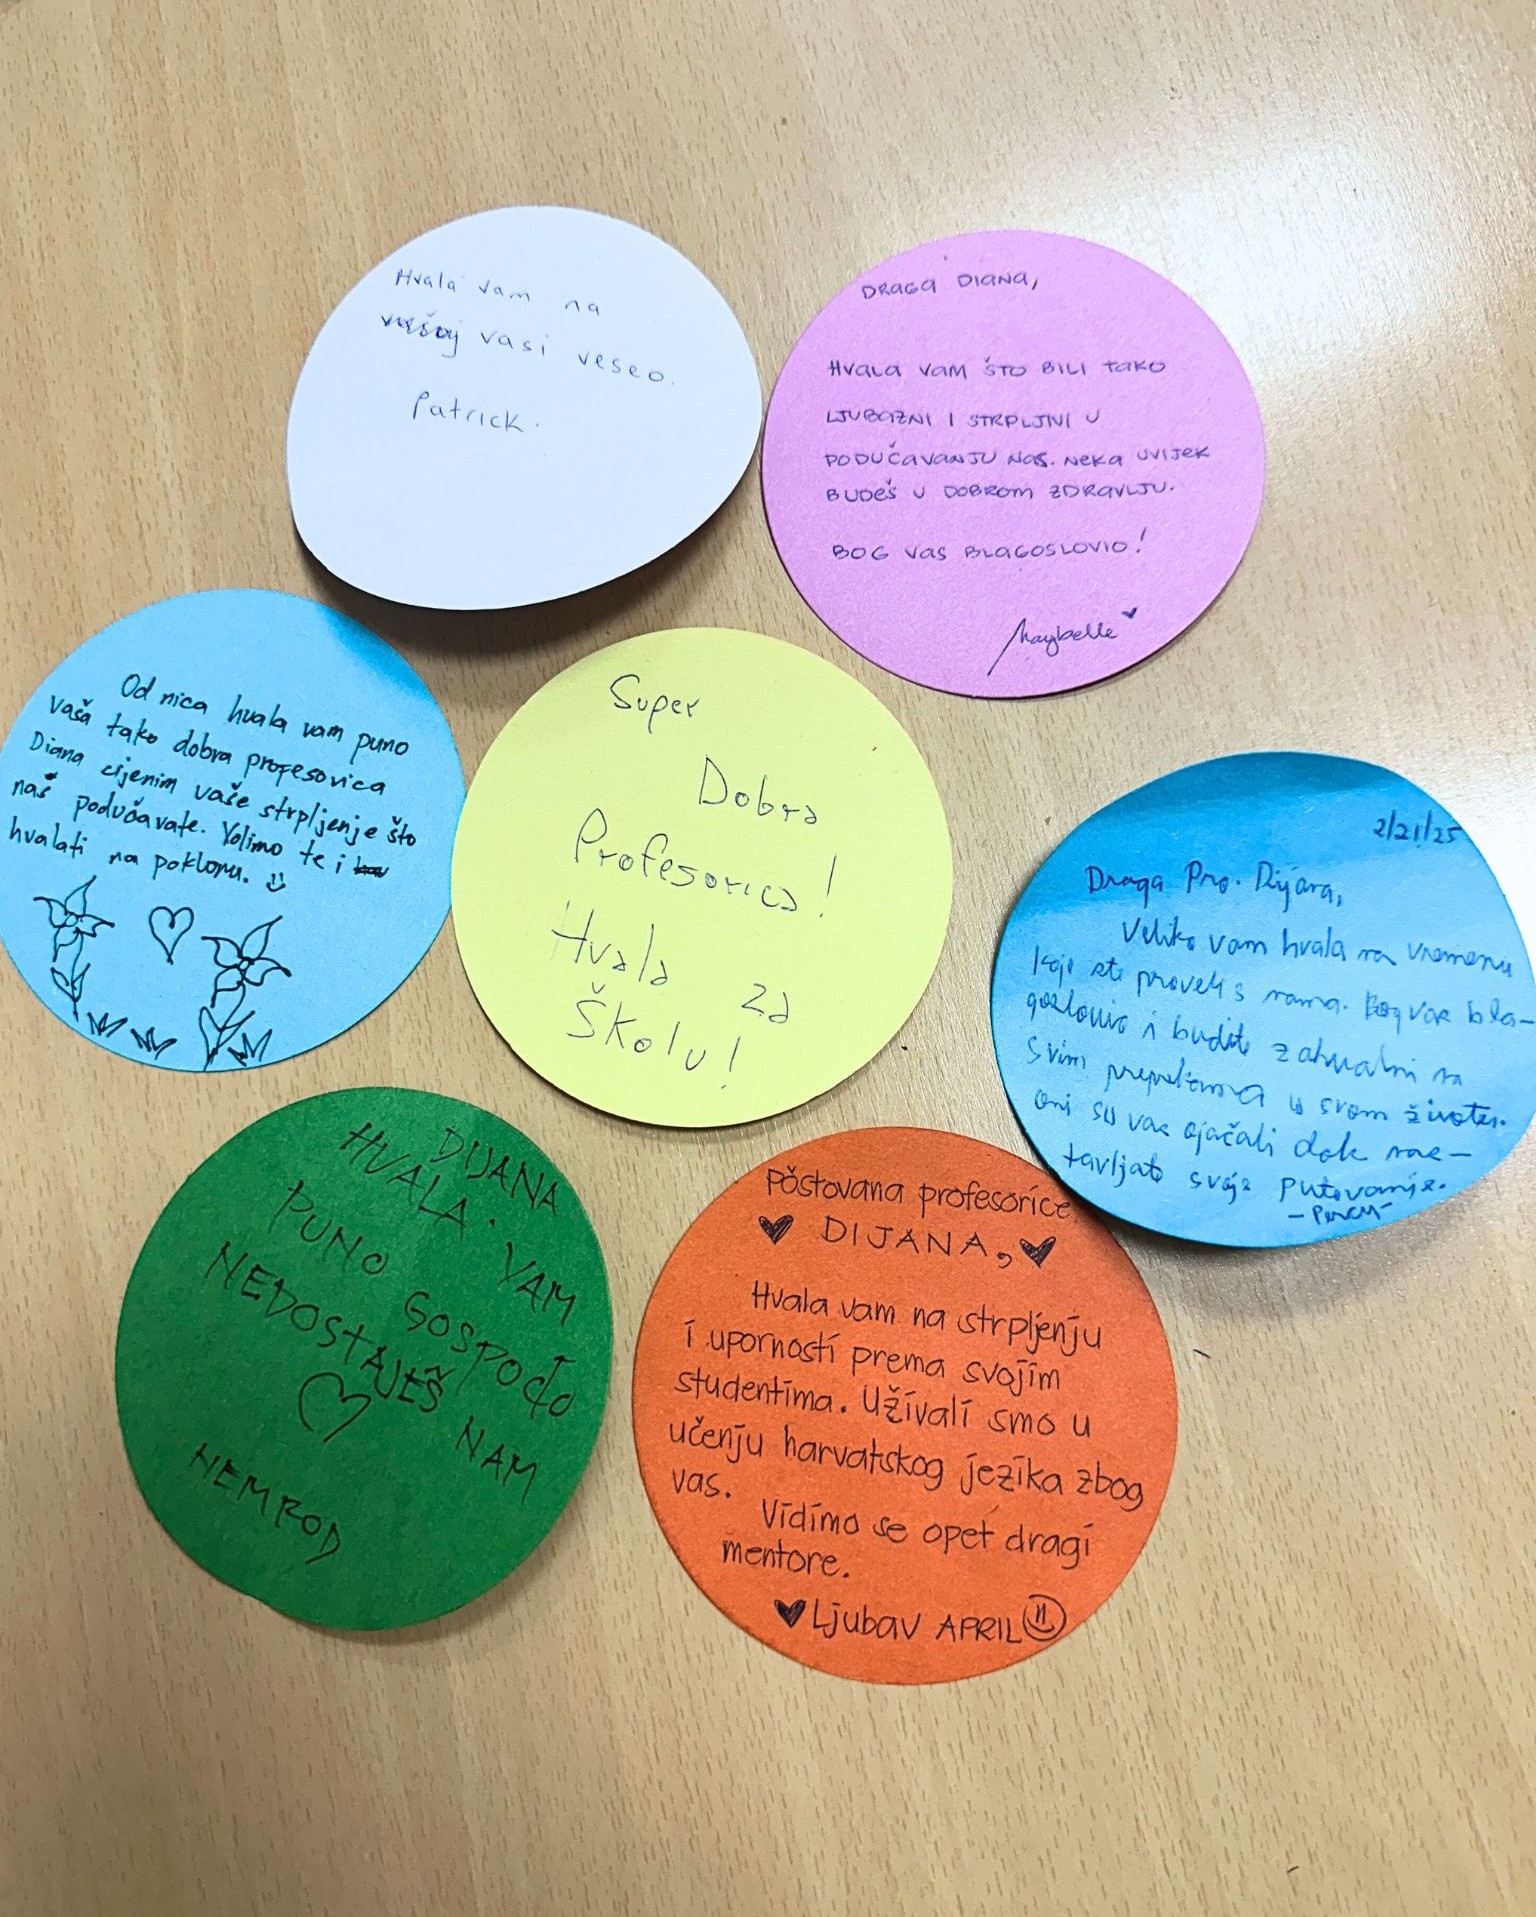 Hvala vam na
vasi veseo.
Patrick.
DRAGA DIANA,
HVALA VAM ŠTO BILI TAKO
LJUBAZNI I STRPLJIVI U
PODUČAVANJU NAS. NEKA UVIJEK
BUDEŠ U DOBROM ZDRAVLJU.
BOG VAS BLAGOSLOVIO!
Maybelle
Od nica hvala vam puno
vaša tako dobra profesorica
Diana cijenim vaše strpljenje što
naš podučavate. Volimo te i
hvalati na poklonu.
Super
Dobra
Profesorica!
Hvala za
Školu!
2/21/25
Draga Pro. Dijana,
Veliko vam hvala na vremenu
koje ste proveli s nama. Bog vas bla-
goslovio i budite zahvalni na
svim preprekama u svom životu.
oni su vas ojačali dok nas-
tavljate svoje putovanje.
- Percy
DIJANA
HVALA. VAM
PUNO GOSPOĐO
NEDOSTAJEŠ NAM
NEMROD
Pöstovana profesorice
DIJANA,
Hvala vam na strpljenju
i upornosti prema svojim
studentima. Uživali smo u
učenju harvatskog jezika zbog
vas.
Vidimo se opet dragi
mentore.
Ljubav APRIL